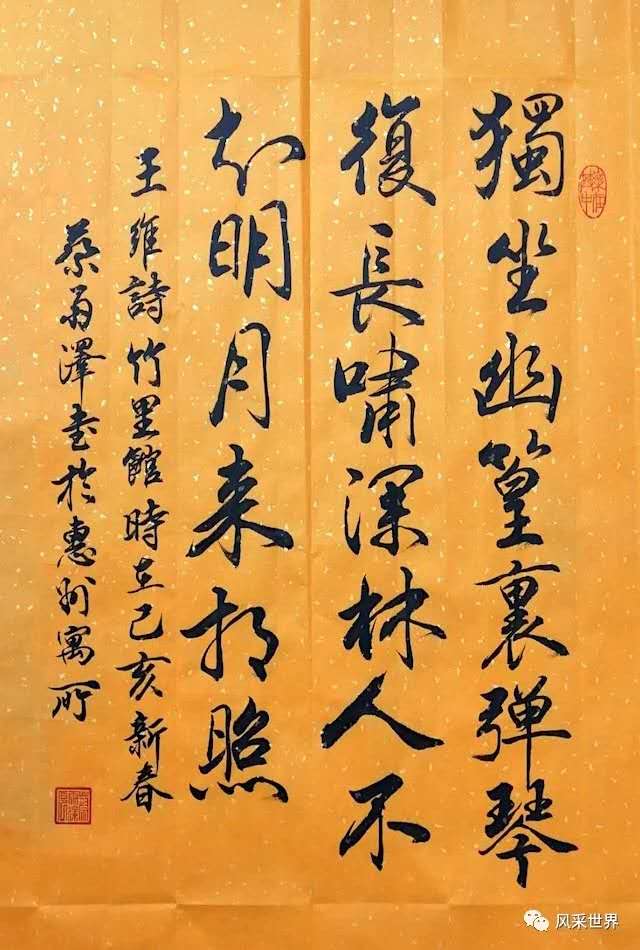 獨坐幽篁裏彈琴
復長嘯深林人不
知明月来相照
王維詩竹里館時在己亥新春
蔡　澤書於惠州寓所
风采世界